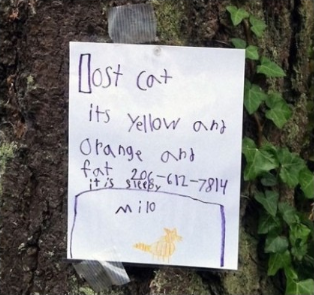 Lost cat
its yellow and
orange and
fat 206-612-7814
it is sleepy
milo